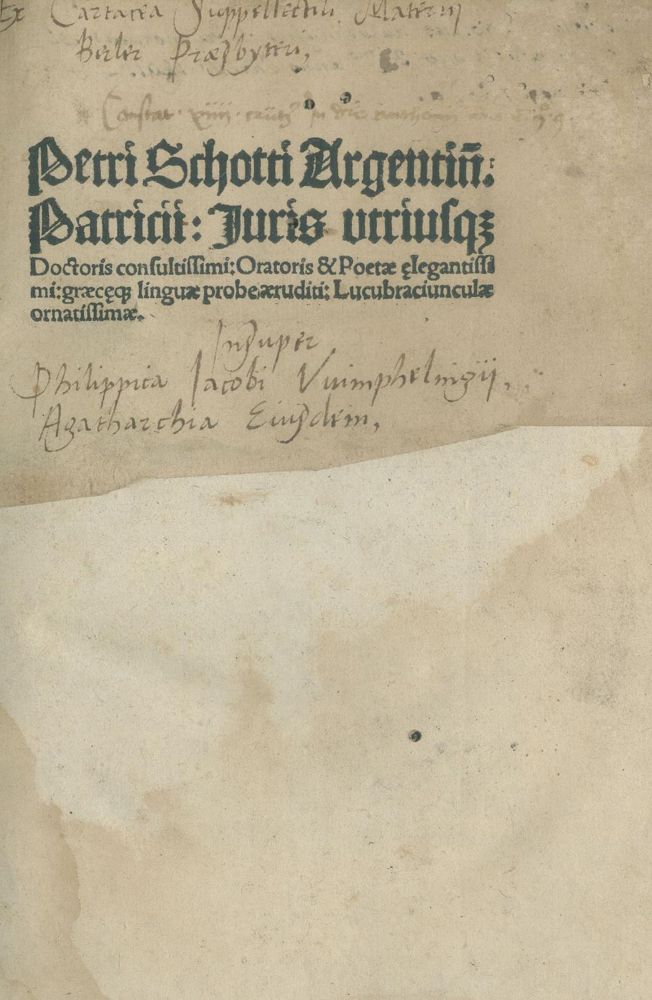 Ex Cartacea Suppellectili Materni
Berler Præsbyteri,
Constat xiiii
Petri Schotti Argentiñ:
Patricii: Juris vtriusqꝫ
Doctoris consultissimi: Oratoris & Poetæ ęlegantissi
mi: græcęqꝫ linguæ probe æruditi: Lucubraciunculæ
ornatissimæ.
Insuper
Philippica Jacobi Vuimphelingij,
Agatharchia Eiusdem,